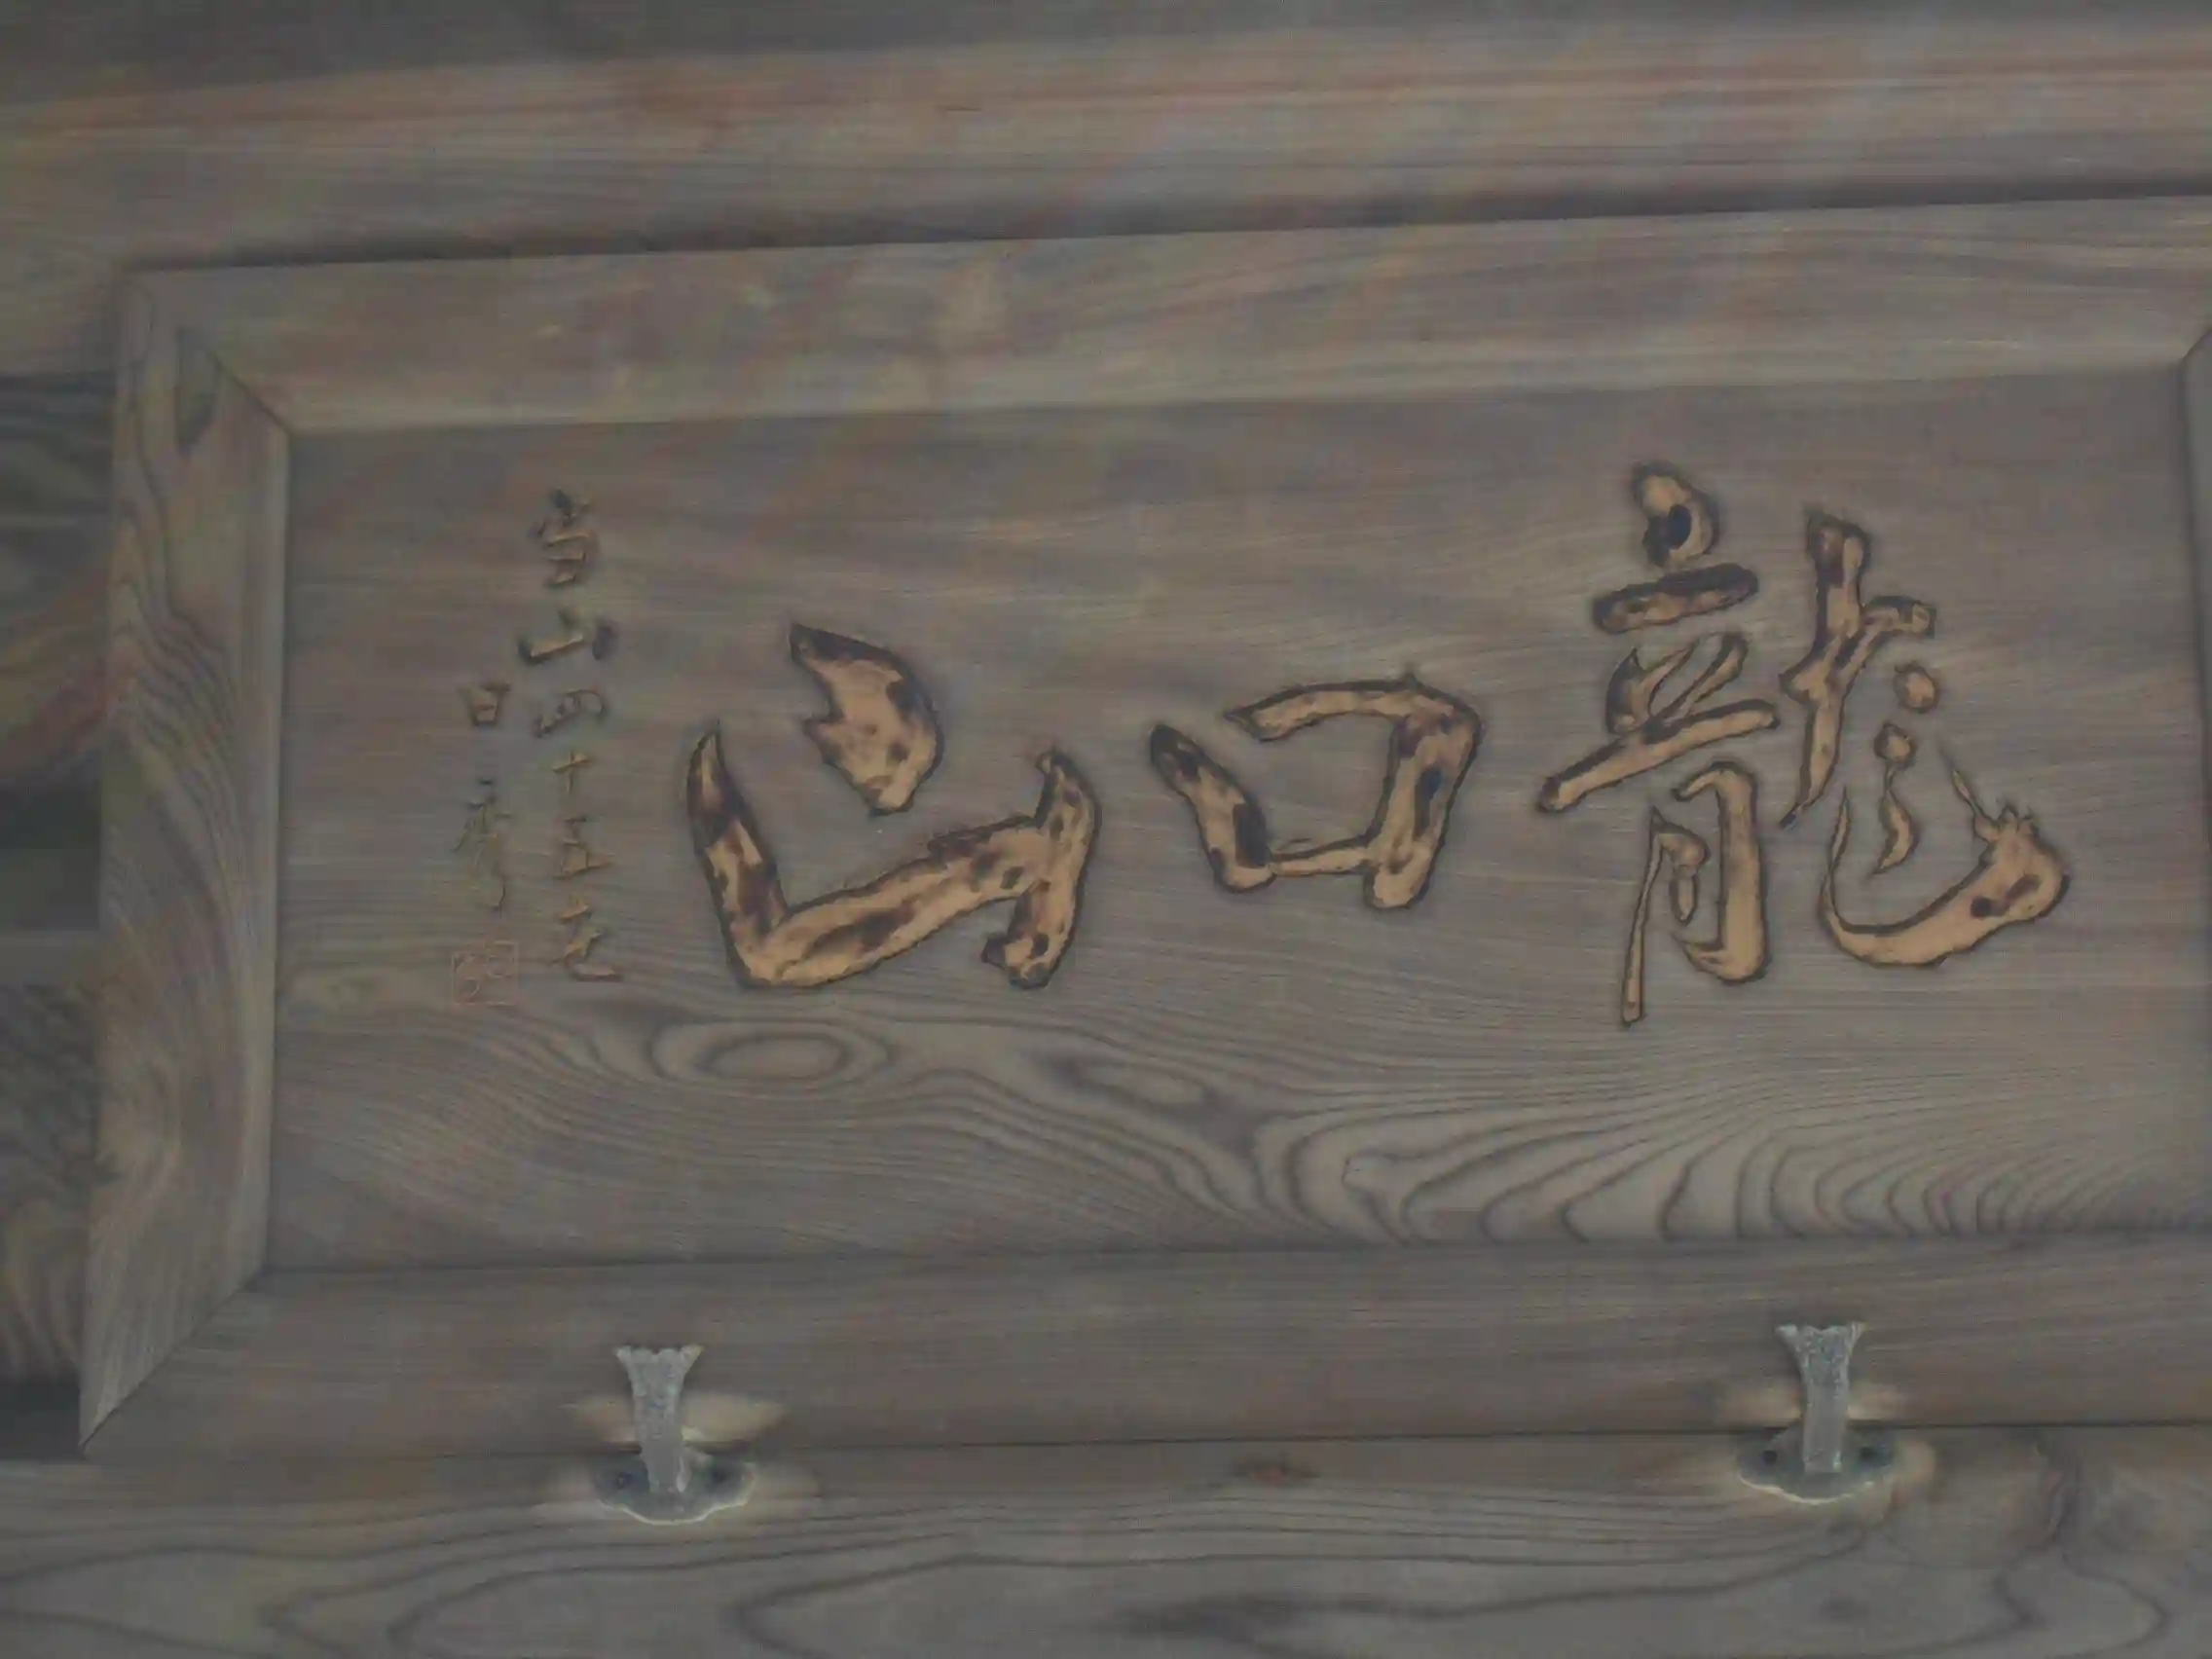 龍口山
当山四十五世
日秀